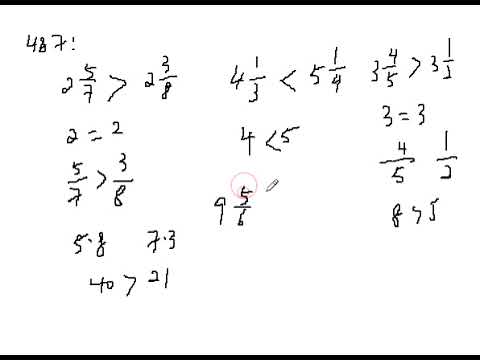 487:
2 5/7 > 2 3/8
2 = 2
5/7 > 3/8
5·8 7·3
40 > 21
4 1/3 < 5 1/4
4 < 5
9 5/6
3 4/5 > 3 1/2
3 = 3
4/5 1/2
8 > 5